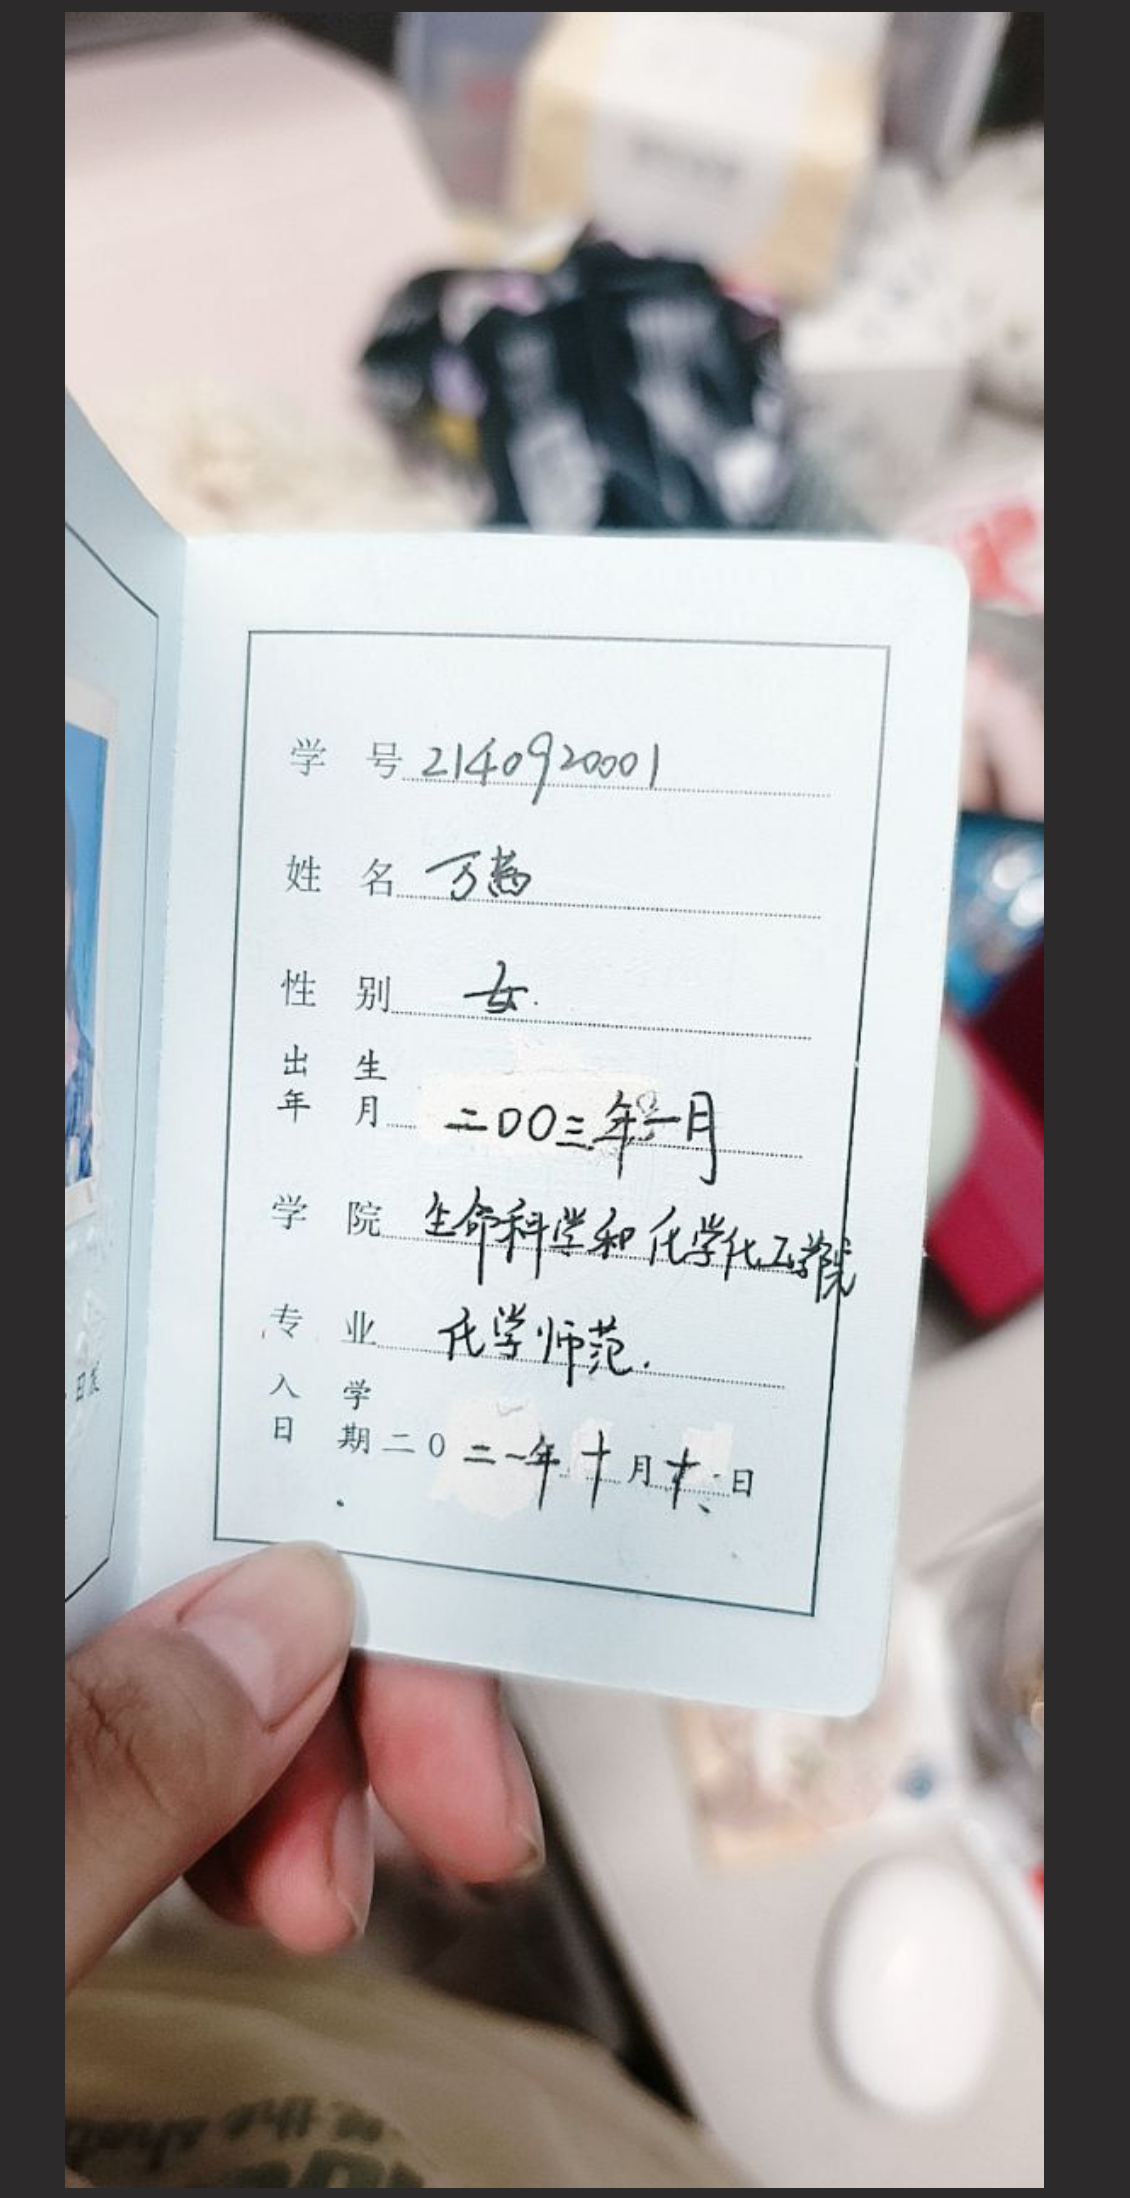 学号 2140920001
姓名 万嵩
性别 女.
出生年月 二00三年一月
学院 生命科学和化学化工学院
专业 化学师范.
入学日期 二0二一年十月十六日